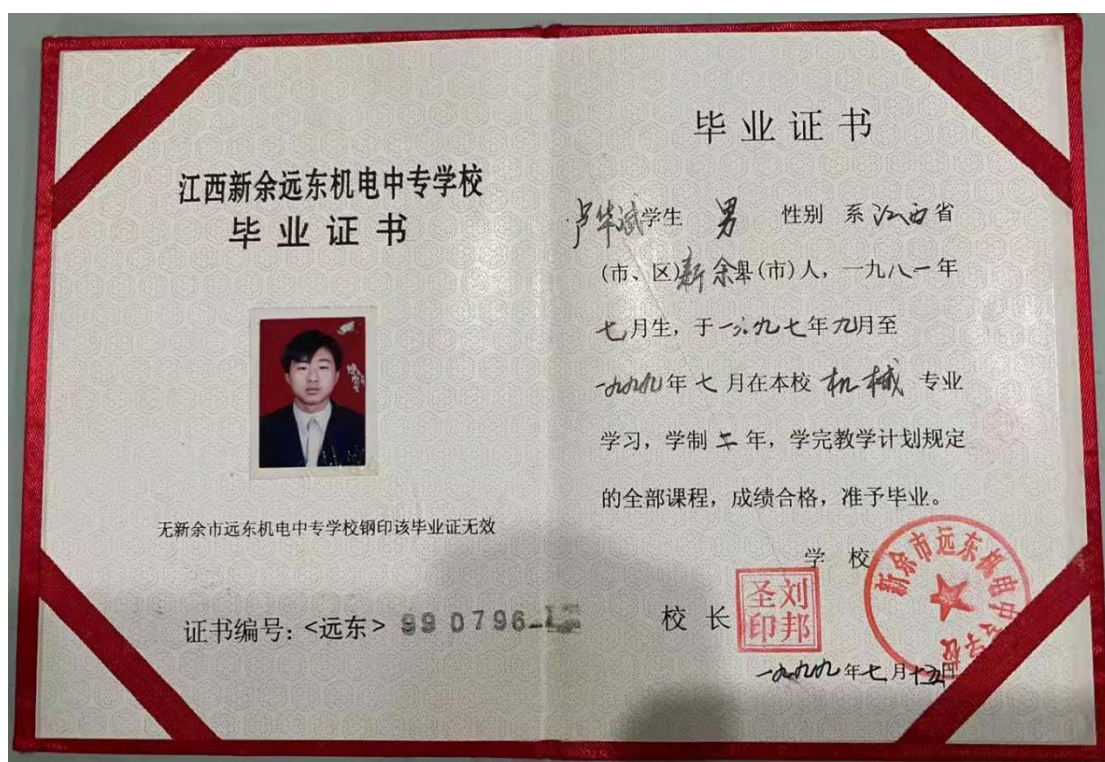 江西新余远东机电中专学校
毕业证书
无新余市远东机电中专学校钢印该毕业证无效
证书编号：<远东> 990796
毕业证书
卢华斌学生 男 性别 系江西省
(市、区)新余县(市)人，一九八一年
七月生，于一九九七年九月至
一九九九年七月在本校 机械 专业
学习，学制二年，学完教学计划规定
的全部课程，成绩合格，准予毕业。
学校
新余市远东机电中专学校
校长
刘邦圣印
一九九九年七月十五日